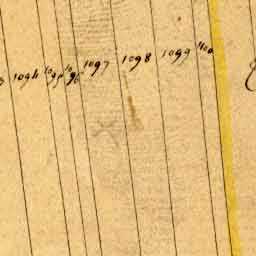 1094 1095 1096 1097 1098 1099 1100